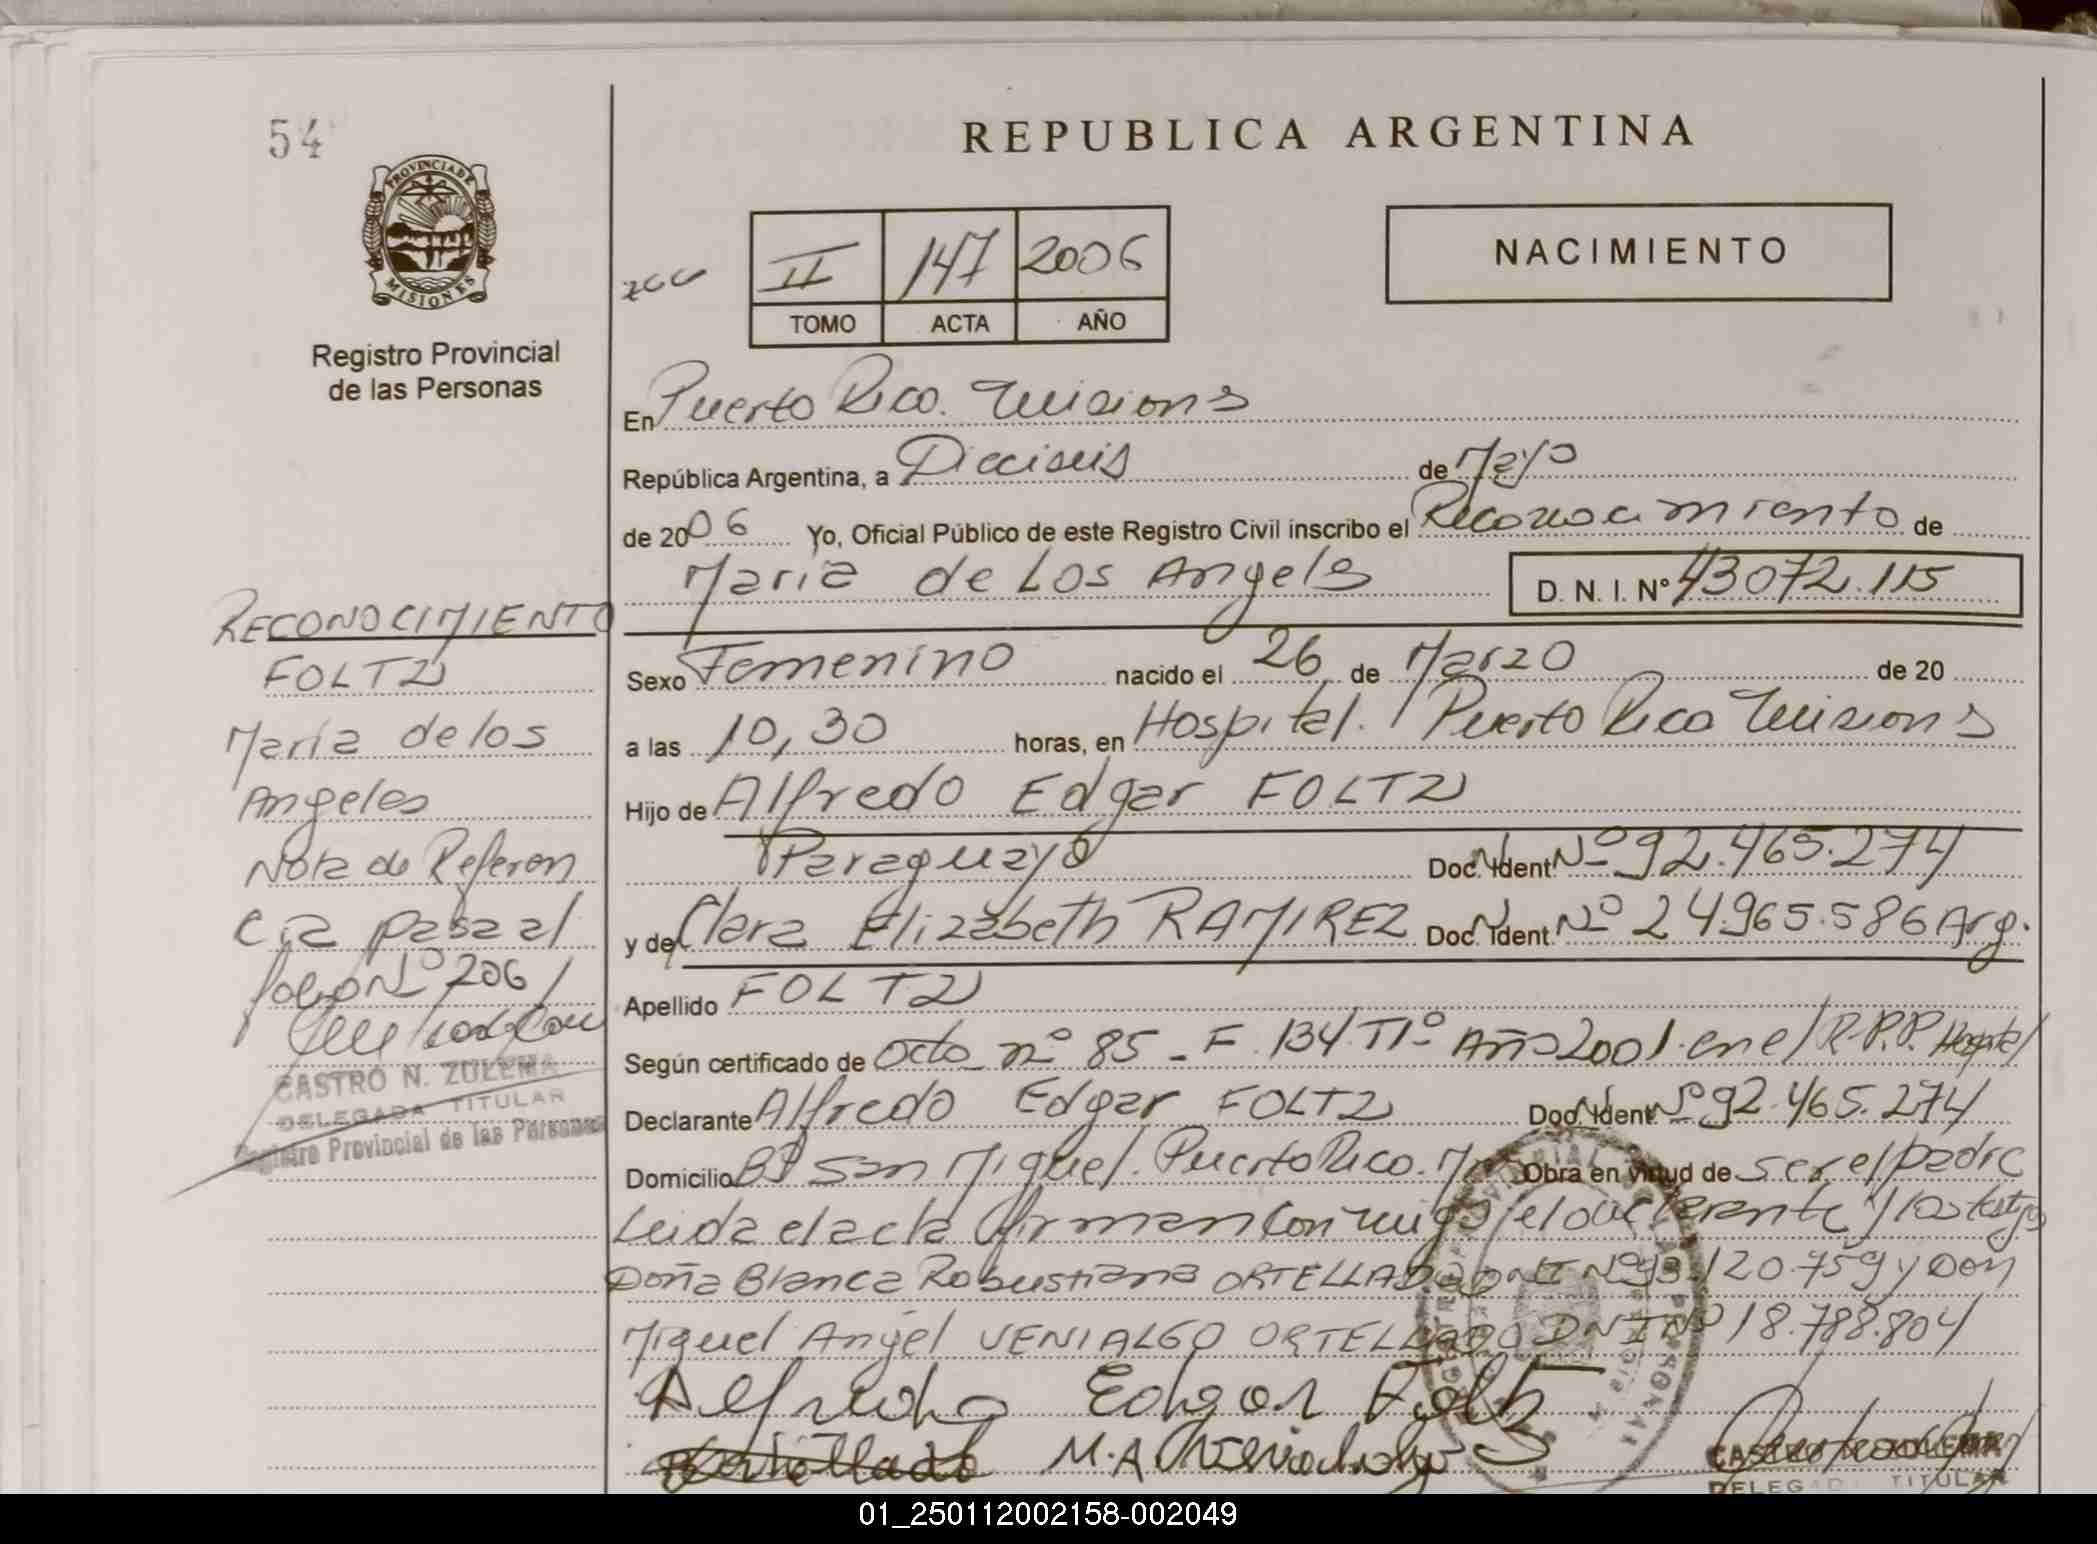 54
REPUBLICA ARGENTINA
PROVINCIA DE
MISIONES
Registro Provincial
de las Personas
II 147 2006
TOMO ACTA AÑO
NACIMIENTO
En Puerto Rico. Misiones
República Argentina, a Dieciseis de Mayo
de 2006 Yo, Oficial Público de este Registro Civil inscribo el Reconocimiento de
Maria de Los Angeles D. N. I. Nº 43072.115
Sexo Femenino nacido el 26 de Marzo de 20
a las 10,30 horas, en Hospital. Puerto Rico Misiones
Hijo de Alfredo Edgar FOLTZ
Paraguayo Doc. Ident Nº 92.465.274
y de Clara Elizabeth RAMIREZ Doc. Ident. Nº 24.965.586 Arg.
Apellido FOLTZ
Según certificado de acta nº 85 - F. 134 T1º Año 2001 en el R.P.P. Hospital
Declarante Alfredo Edgar FOLTZ Doc. Ident. Nº 92.465.274
Domicilio Bº San Miguel. Puerto Rico. Obra en virtud de ser el padre
Leida el acta firman conmigo el declarante y los testigos
Doña Blanca Robustiana ORTELLADO DNI Nº 93.120.759 y Don
Miguel Angel VENIALGO ORTELLADO DNI Nº 18.788.804
Alfredo Edgar Foltz
Ortellado M.A.
CASTRO N. ZULEMA
DELEGADA TITULAR
RECONOCIMIENTO
FOLTZ
Maria de los
Angeles
Nota de Referen
cia pasa al
folio Nº 206
CASTRO N. ZULEMA
DELEGADA TITULAR
Registro Provincial de las Personas
01_250112002158-002049